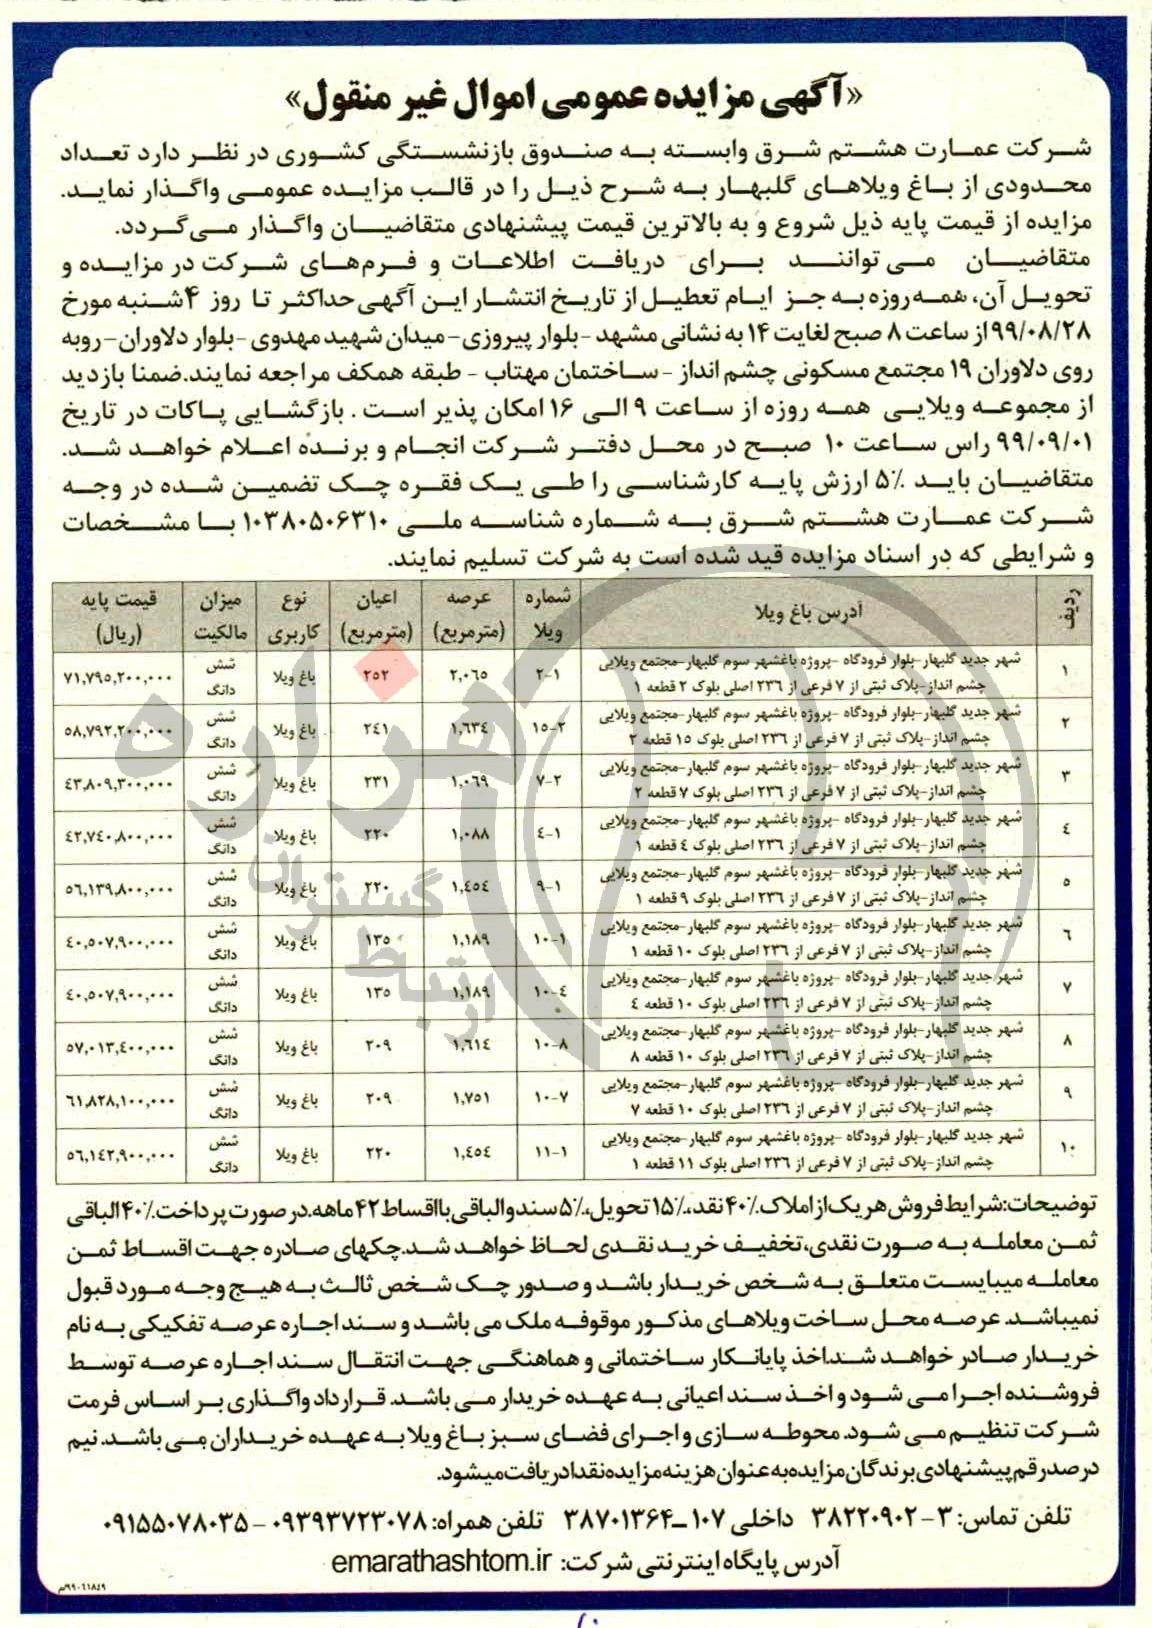 «آگهی مزایده عمومی اموال غیر منقول»
شرکت عمارت هشتم شرق وابسته به صندوق بازنشستگی کشوری در نظر دارد تعداد
محدودی از باغ ویلاهای گلبهار به شرح ذیل را در قالب مزایده عمومی واگذار نماید.
مزایده از قیمت پایه ذیل شروع و به بالاترین قیمت پیشنهادی متقاضیان واگذار می‌گردد.
متقاضیان می توانند برای دریافت اطلاعات و فرم‌های شرکت در مزایده و
تحویل آن، همه روزه به جز ایام تعطیل از تاریخ انتشار این آگهی حداکثر تا روز ۴شنبه مورخ
۹۹/۰۸/۲۸ از ساعت ۸ صبح لغایت ۱۴ به نشانی مشهد -بلوار پیروزی-میدان شهید مهدوی -بلوار دلاوران-روبه
روی دلاوران ۱۹ مجتمع مسکونی چشم انداز -ساختمان مهتاب - طبقه همکف مراجعه نمایند.ضمنا بازدید
از مجموعه ویلایی همه روزه از ساعت ۹ الی ۱۶ امکان پذیر است . بازگشایی پاکات در تاریخ
۹۹/۰۹/۰۱ راس ساعت ۱۰ صبح در محل دفتر شرکت انجام و برنده اعلام خواهد شد.
متقاضیان باید ۵٪ ارزش پایه کارشناسی را طی یک فقره چک تضمین شده در وجه
شرکت عمارت هشتم شرق به شماره شناسه ملی ۱۰۳۸۰۵۰۶۳۱۰ با مشخصات
و شرایطی که در اسناد مزایده قید شده است به شرکت تسلیم نمایند.
ردیف آدرس باغ ویلا شماره ویلا عرصه (مترمربع) اعیان (مترمربع) نوع کاربری میزان مالکیت قیمت پایه (ریال)
۱ شهر جدید گلبهار-بلوار فرودگاه -پروژه باغشهر سوم گلبهار-مجتمع ویلایی چشم انداز-پلاک ثبتی از ۷ فرعی از ۲۳۶ اصلی بلوک ۲ قطعه ۱ ۲-۱ ۲,۰۶۵ ۲۵۲ باغ ویلا شش دانگ ۷۱,۷۹۵,۲۰۰,۰۰۰
۲ شهر جدید گلبهار-بلوار فرودگاه -پروژه باغشهر سوم گلبهار-مجتمع ویلایی چشم انداز-پلاک ثبتی از ۷ فرعی از ۲۳۶ اصلی بلوک ۱۵ قطعه ۲ ۱۵-۲ ۱,۶۳۴ ۲۴۱ باغ ویلا شش دانگ ۵۸,۷۹۲,۲۰۰,۰۰۰
۳ شهر جدید گلبهار-بلوار فرودگاه -پروژه باغشهر سوم گلبهار-مجتمع ویلایی چشم انداز-پلاک ثبتی از ۷ فرعی از ۲۳۶ اصلی بلوک ۷ قطعه ۲ ۷-۲ ۱,۰۶۹ ۲۳۱ باغ ویلا شش دانگ ۴۳,۸۰۹,۳۰۰,۰۰۰
۴ شهر جدید گلبهار-بلوار فرودگاه -پروژه باغشهر سوم گلبهار-مجتمع ویلایی چشم انداز-پلاک ثبتی از ۷ فرعی از ۲۳۶ اصلی بلوک ۴ قطعه ۱ ۴-۱ ۱,۰۸۸ ۲۲۰ باغ ویلا شش دانگ ۴۲,۷۴۰,۸۰۰,۰۰۰
۵ شهر جدید گلبهار-بلوار فرودگاه -پروژه باغشهر سوم گلبهار-مجتمع ویلایی چشم انداز-پلاک ثبتی از ۷ فرعی از ۲۳۶ اصلی بلوک ۹ قطعه ۱ ۹-۱ ۱,۴۵۴ ۲۲۰ باغ ویلا شش دانگ ۵۶,۱۳۹,۸۰۰,۰۰۰
۶ شهر جدید گلبهار-بلوار فرودگاه -پروژه باغشهر سوم گلبهار-مجتمع ویلایی چشم انداز-پلاک ثبتی از ۷ فرعی از ۲۳۶ اصلی بلوک ۱۰ قطعه ۱ ۱۰-۱ ۱,۱۸۹ ۱۳۵ باغ ویلا شش دانگ ۴۰,۵۰۷,۹۰۰,۰۰۰
۷ شهر جدید گلبهار-بلوار فرودگاه -پروژه باغشهر سوم گلبهار-مجتمع ویلایی چشم انداز-پلاک ثبتی از ۷ فرعی از ۲۳۶ اصلی بلوک ۱۰ قطعه ۴ ۱۰-۴ ۱,۱۸۹ ۱۳۵ باغ ویلا شش دانگ ۴۰,۵۰۷,۹۰۰,۰۰۰
۸ شهر جدید گلبهار-بلوار فرودگاه -پروژه باغشهر سوم گلبهار-مجتمع ویلایی چشم انداز-پلاک ثبتی از ۷ فرعی از ۲۳۶ اصلی بلوک ۱۰ قطعه ۸ ۱۰-۸ ۱,۶۱۴ ۲۰۹ باغ ویلا شش دانگ ۵۷,۰۱۳,۴۰۰,۰۰۰
۹ شهر جدید گلبهار-بلوار فرودگاه -پروژه باغشهر سوم گلبهار-مجتمع ویلایی چشم انداز-پلاک ثبتی از ۷ فرعی از ۲۳۶ اصلی بلوک ۱۰ قطعه ۷ ۱۰-۷ ۱,۷۵۱ ۲۰۹ باغ ویلا شش دانگ ۶۱,۸۲۸,۱۰۰,۰۰۰
۱۰ شهر جدید گلبهار-بلوار فرودگاه -پروژه باغشهر سوم گلبهار-مجتمع ویلایی چشم انداز-پلاک ثبتی از ۷ فرعی از ۲۳۶ اصلی بلوک ۱۱ قطعه ۱ ۱۱-۱ ۱,۴۵۴ ۲۲۰ باغ ویلا شش دانگ ۵۶,۱۴۲,۹۰۰,۰۰۰
توضیحات:شرایط فروش هر یک از املاک ۴۰٪ نقد، ۱۵٪ تحویل، ۵٪ سند و الباقی با اقساط ۴۲ ماهه.در صورت پرداخت ۴۰٪ الباقی
ثمن معامله به صورت نقدی،تخفیف خرید نقدی لحاظ خواهد شد.چکهای صادره جهت اقساط ثمن
معامله میبایست متعلق به شخص خریدار باشد و صدور چک شخص ثالث به هیچ وجه مورد قبول
نمیباشد. عرصه محل ساخت ویلاهای مذکور موقوفه ملک می باشد و سند اجاره عرصه تفکیکی به نام
خریدار صادر خواهد شد.اخذ پایانکار ساختمانی و هماهنگی جهت انتقال سند اجاره عرصه توسط
فروشنده اجرا می شود و اخذ سند اعیانی به عهده خریدار می باشد. قرارداد واگذاری بر اساس فرمت
شرکت تنظیم می شود. محوطه سازی و اجرای فضای سبز باغ ویلا به عهده خریداران می باشد. نیم
درصد رقم پیشنهادی برندگان مزایده به عنوان هزینه مزایده نقدا دریافت میشود.
تلفن تماس: ۳-۳۸۲۲۰۹۰۲ داخلی ۱۰۷ــ۳۸۷۰۱۳۶۴ تلفن همراه: ۰۹۳۹۳۷۲۳۰۷۸-۰۹۱۵۵۰۷۸۰۳۵
آدرس پایگاه اینترنتی شرکت: emarathashtom.ir
۹۹۰۶۱۸۴۹م
هزاره
گستران
ارتباط